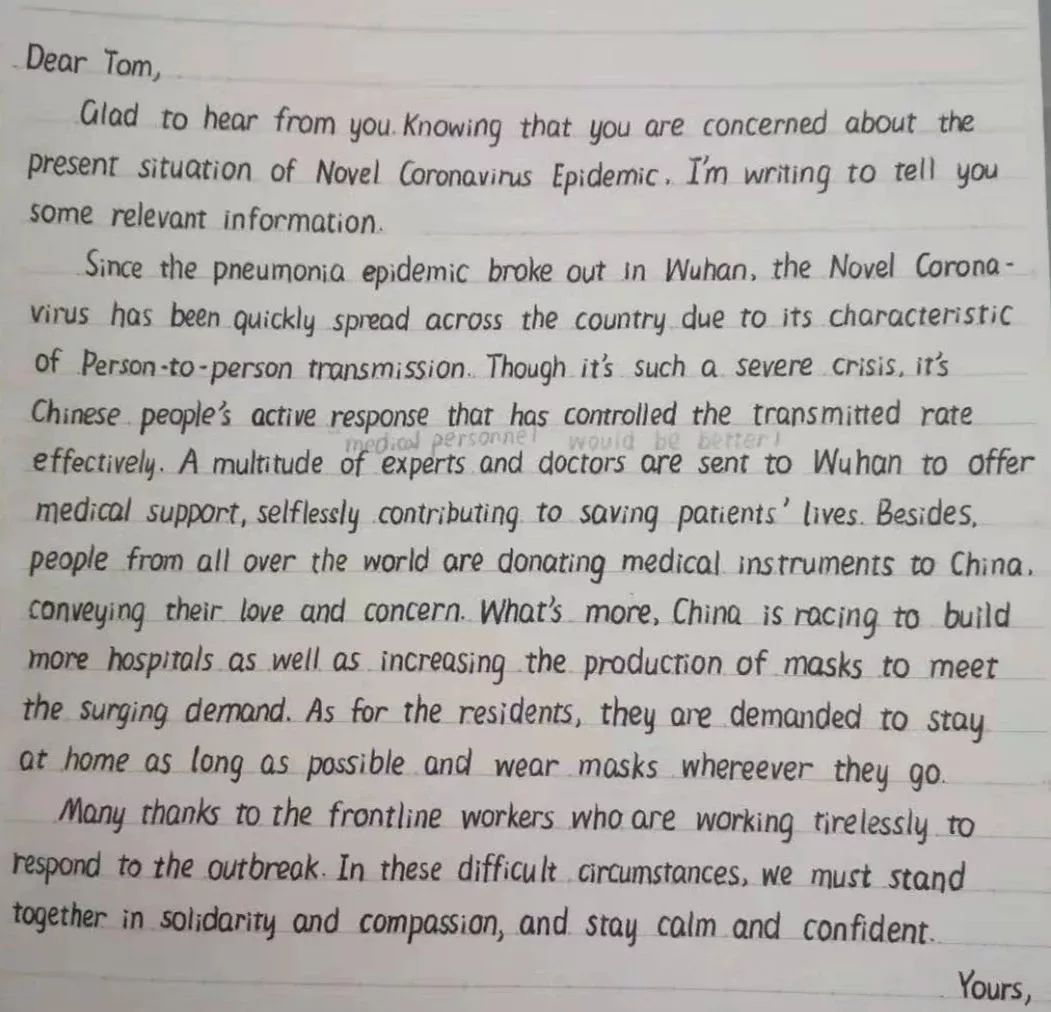 Dear Tom,
Glad to hear from you. Knowing that you are concerned about the
present situation of Novel Coronavirus Epidemic, I'm writing to tell you
some relevant information.
Since the pneumonia epidemic broke out in Wuhan, the Novel Corona-
virus has been quickly spread across the country due to its characteristic
of Person-to-person transmission. Though it's such a severe crisis, it's
Chinese people's active response that has controlled the transmitted rate
medical personnel would be better!
effectively. A multitude of experts and doctors are sent to Wuhan to offer
medical support, selflessly contributing to saving patients' lives. Besides,
people from all over the world are donating medical instruments to China,
conveying their love and concern. What's more, China is racing to build
more hospitals as well as increasing the production of masks to meet
the surging demand. As for the residents, they are demanded to stay
at home as long as possible and wear masks whereever they go.
Many thanks to the frontline workers who are working tirelessly to
respond to the outbreak. In these difficult circumstances, we must stand
together in solidarity and compassion, and stay calm and confident.
Yours,